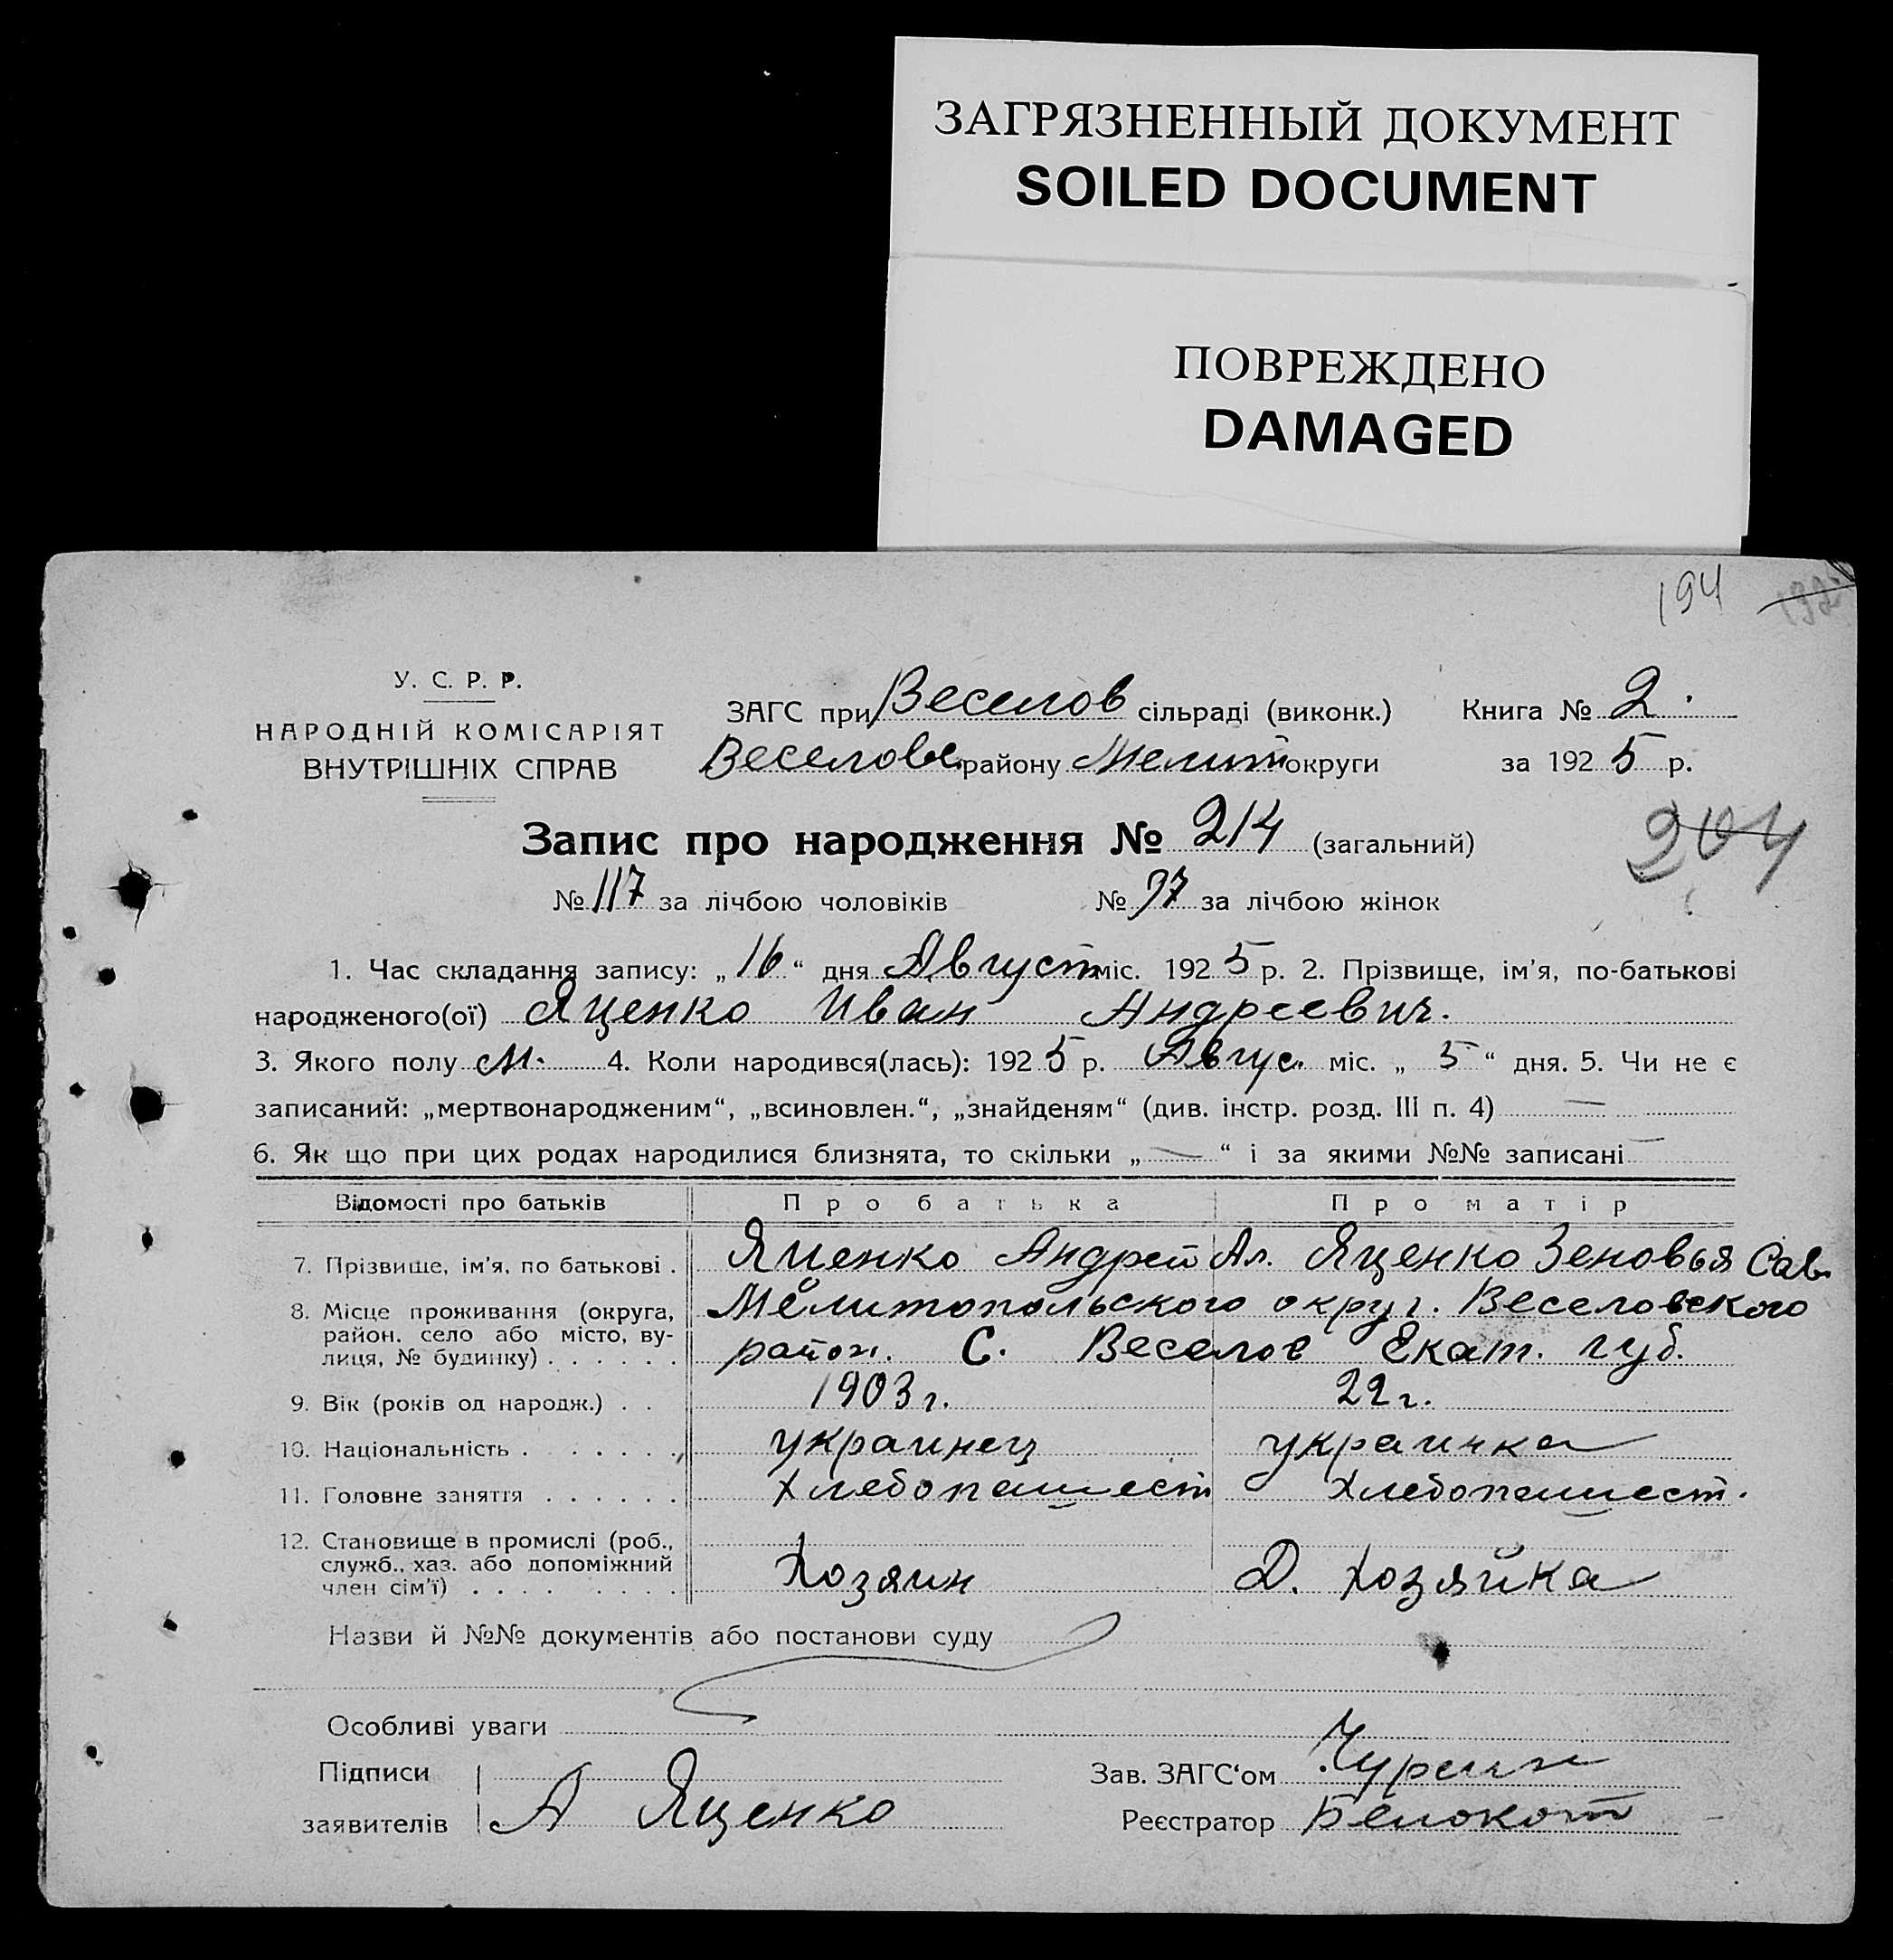 ЗАГРЯЗНЕННЫЙ ДОКУМЕНТ
SOILED DOCUMENT
ПОВРЕЖДЕНО
DAMAGED
194
У. С. Р. Р.
НАРОДНІЙ КОМІСАРІЯТ
ВНУТРІШНІХ СПРАВ
ЗАГС при Веселов сільраді (виконк.) Книга № 2.
Веселовс. району Мелит округи за 1925 р.
Запис про народження № 214 (загальний)
204
№ 117 за лічбою чоловіків № 97 за лічбою жінок
1. Час складання запису: „16“ дня Август міс. 1925 р. 2. Прізвище, ім'я, по-батькові
народженого(ої) Яценко Иван Андреевич.
3. Якого полу М. 4. Коли народився(лась): 1925 р. Авгус. міс. „5“ дня. 5. Чи не є
записаний: „мертвонародженим“, „всиновлен.“, „знайденям“ (див. інстр. розд. III п. 4) —
6. Як що при цих родах народилися близнята, то скільки „—“ і за якими №№ записані —
Відомості про батьків Про батька Про матір
7. Прізвище, ім'я, по батькові . Яценко Андрей Ал. Яценко Зеновья Сав.
8. Місце проживання (округа, Мелитопольского округ. Веселовского
район, село або місто, ву-
лиця, № будинку) . . . . . . район. С. Веселое Екат. губ.
9. Вік (років од народж.) . . 1903 г. 22 г.
10. Національність . . . . . . украинец украинка
11. Головне заняття . . . . . . Хлебопашест Хлебопашест.
12. Становище в промислі (роб.,
служб., хаз. або допоміжний
член сім'ї) . . . . . . . . . Хозяин Д. Хозяйка
Назви й №№ документів або постанови суду
Особливі уваги
Підписи
заявителів А Яценко
Зав. ЗАГС'ом Чурсин
Реєстратор Белокот